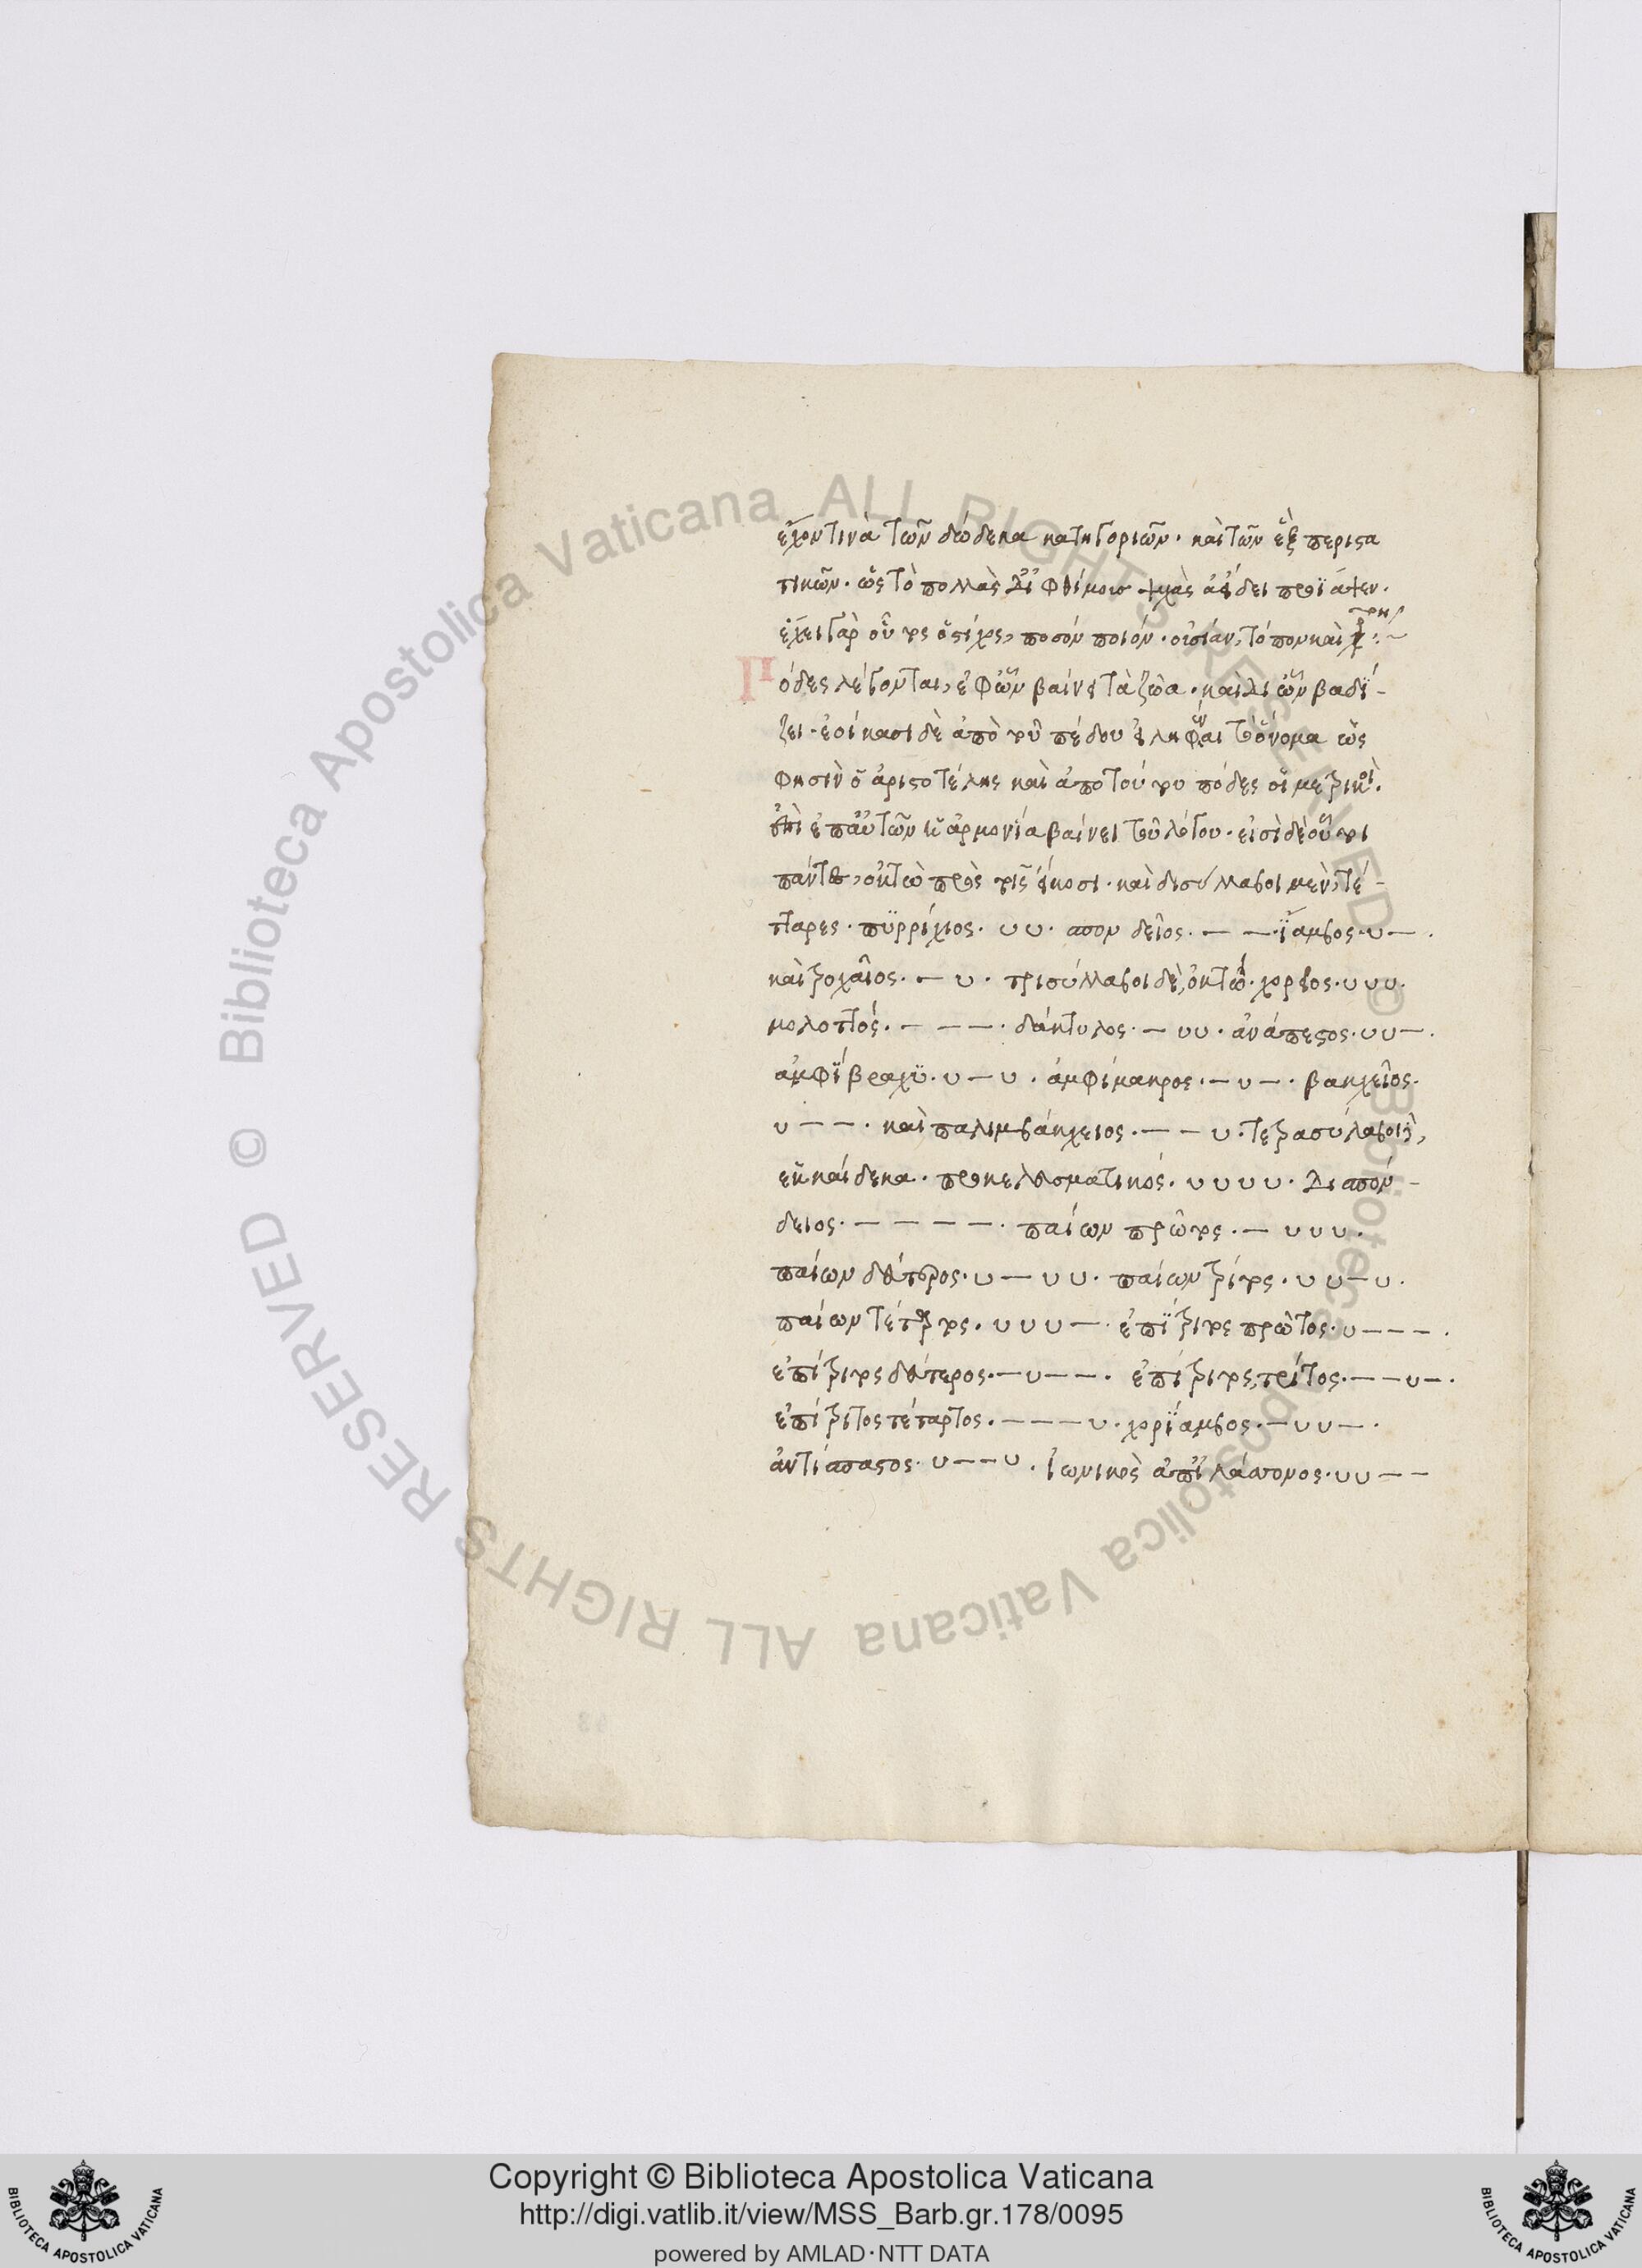 ἔχοντινὰ τῶν δώδεκα κατηγοριῶν· καὶ τῶν ἓξ περιστα
τικῶν· ὡς τὸ πολλὰς δ' ἰφθίμους ψυχὰς ἀΐδει προΐαψεν·
ἔχει γὰρ οὗτος ὁ στίχος, ποσόν ποιόν· οὐσίαν, τόπον καὶ
Πόδες λέγονται, ἐφ' ὧν βαίνει τὰ ζῶα· καὶ δι ὧν βαδί-
ζει· ἐοίκασι δὲ ἀπὸ τοῦ πέδου εἰληφέναι τοὔνομα ὥς
φησιν ὁ ἀριστοτέλης καὶ ἀπὸ τούτου πόδες οἱ μετρικοὶ·
ἐπεὶ ἐπ' αὐτῶν ἡ ἁρμονία βαίνει τοῦ λόγου· εἰσὶ δὲ οὗτοι
πάντες, ὀκτὼ πρὸς τοῖς εἴκοσι· καὶ δισύλλαβοι μὲν, τέ-
τταρες· πυρρίχιος· υυ· σπονδεῖος· — —· ἴαμβος· υ—·
καὶ τροχαῖος· — υ· τρισύλλαβοι δὲ, ὀκτώ· χορεῖος· υυυ·
μολοττός· — — —· δάκτυλος· — υυ· ἀνάπεστος· υυ—·
ἀμφίβραχυ· υ—υ· ἀμφίμακρος· —υ—· βακχεῖος·
υ— —· καὶ παλιμβάκχειος· — —υ· τετρασύλαβοι δὲ,
ἑκκαίδεκα· προκελευσματικός· υυυυ· δισπόν-
δειος· — — — —· παίων πρῶτος· — υυυ·
παίων δεύτερος· υ—υυ· παίων τρίτος· υυ—υ·
παίων τέταρτος· υυυ—· ἐπίτριτος πρῶτος· υ— — —·
ἐπίτριτος δεύτερος· —υ— —· ἐπίτριτος, τρίτος· — —υ—·
ἐπίτριτος τέταρτος· — — —υ· χορίαμβος· —υυ—·
ἀντίσπαστος· υ— —υ· ἰωνικὸς ἀπ' ἐλάσσονος· υυ— —
Copyright © Biblioteca Apostolica Vaticana
http://digi.vatlib.it/view/MSS_Barb.gr.178/0095
powered by AMLAD·NTT DATA
BIBLIOTECA APOSTOLICA VATICANA
BIBLIOTECA APOSTOLICA VATICANA
© Biblioteca Apostolica Vaticana ALL RIGHTS RESERVED
© Biblioteca Apostolica Vaticana ALL RIGHTS RESERVED